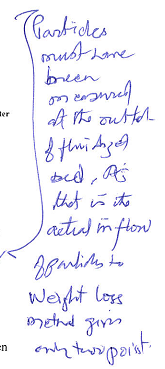 Particles
must have
been
measured
at the outlet
of fluidized
bed, As
that is the
actual inflow
of particles to
Weight loss
method gives
only two point.
ter
en